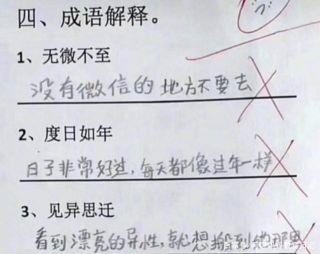 四、成语解释。
1、无微不至
没有微信的地方不要去
2、度日如年
日子非常好过，每天都像过年一样
3、见异思迁
看到漂亮的异性，就想搬到他那里